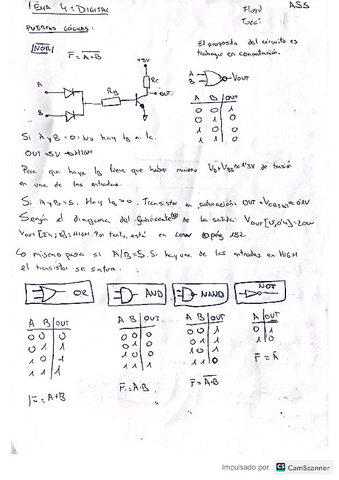 TEMA 4: DIGITAL
ASS
PUERTAS LÓGICAS:
|NOR| F = A+B
El proposito del circuito es
trabajar en conmutación.
+5V
RC
OUT
RB
A
B
A
B
VOUT
A B OUT
0 0 1
0 1 0
1 0 0
1 1 0
Si A y B = 0. No hay IB ni IC.
OUT 5V → HIGH
Para que haya IB tiene que haber minimo de tensión
en una de las entradas.
Si A y B = 5. Hay IB > 0. Transistor en saturación OUT
Según el diagrama del fabricante de la salida:
Por tanto, está en LOW pág 182
Lo mismo pasa si A/B = 5. Si hay una de las entradas en HIGH
el transistor se satura.
OR
AND
NAND
NOT
A B OUT
0 0 0
0 1 1
1 0 1
1 1 1
F = A+B
A B OUT
0 0 0
0 1 0
1 0 0
1 1 1
F = A·B
A B OUT
0 0 1
0 1 1
1 0 1
1 1 0
F = A·B
A OUT
0 1
1 0
F = A
Impulsado por CS CamScanner